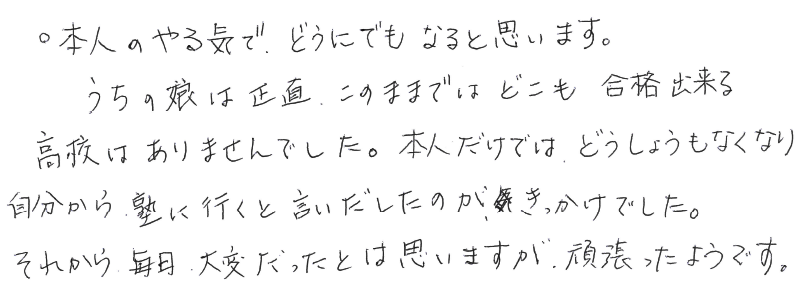 ○本人のやる気で、どうにでもなると思います。
うちの娘は正直、このままではどこも合格出来る
高校はありませんでした。本人だけでは、どうしょうもなくなり
自分から塾に行くと言いだしたのが、きっかけでした。
それから毎日、大変だったとは思いますが、頑張ったようです。